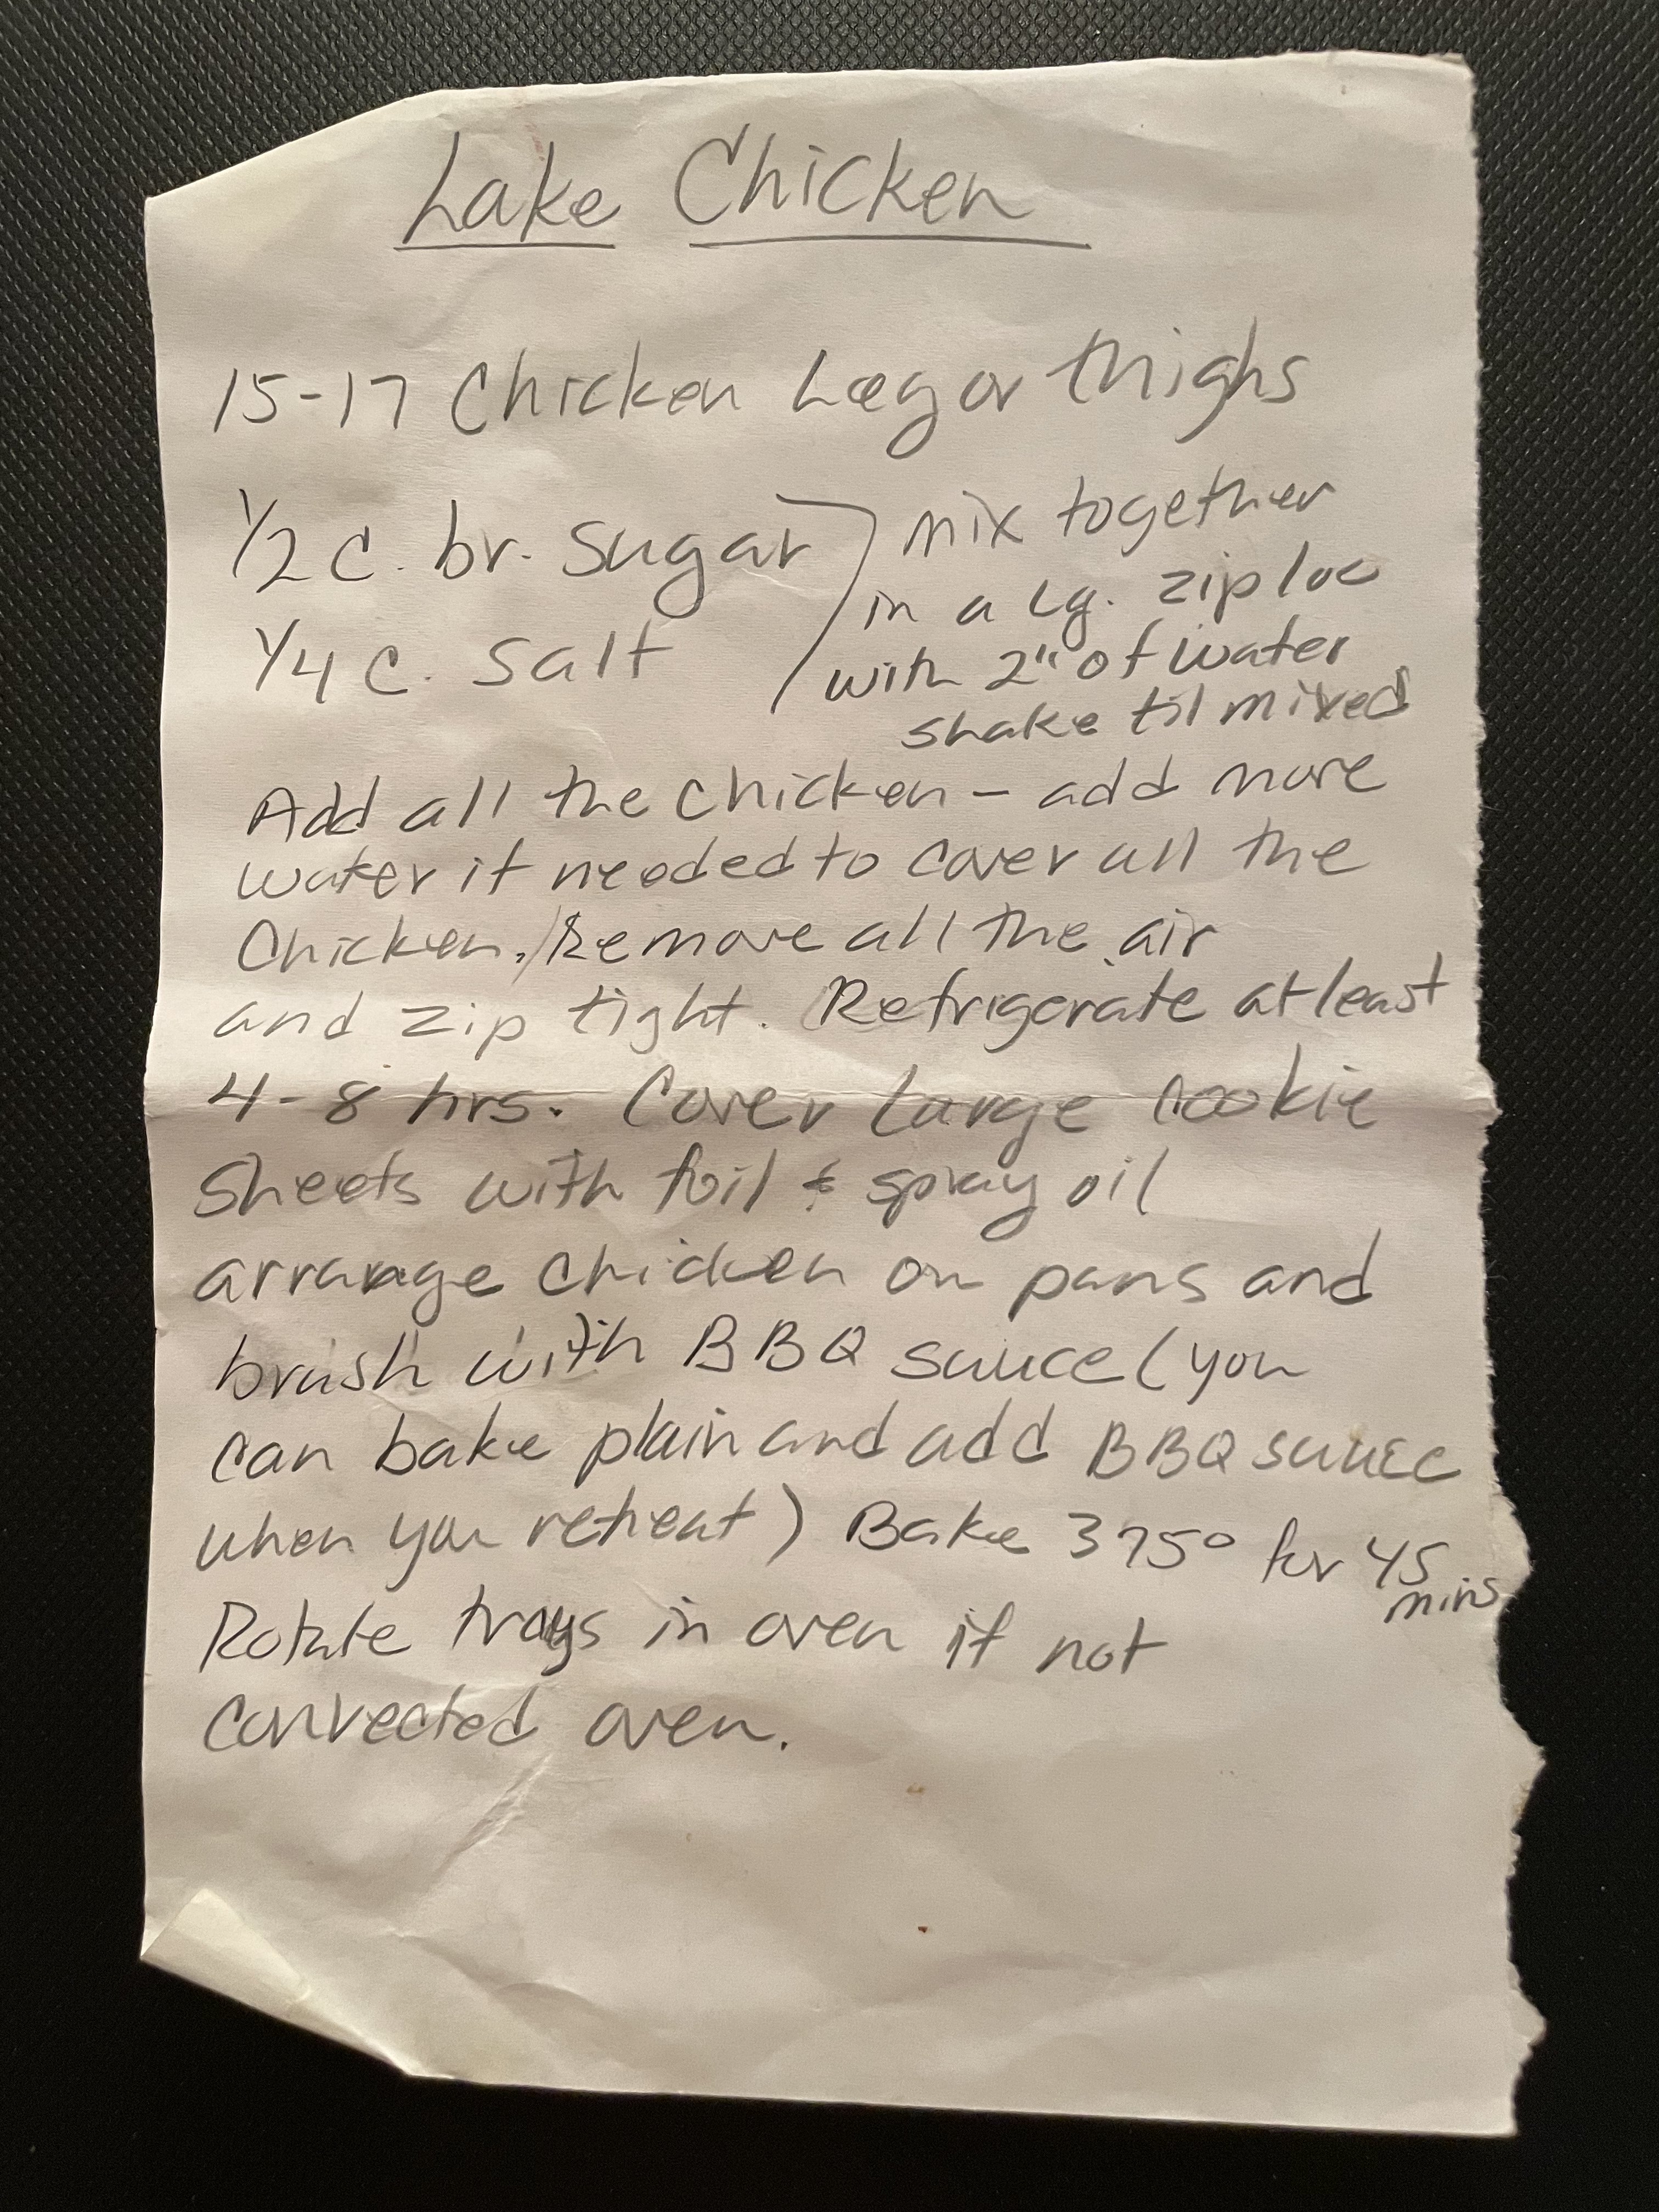 Lake Chicken
15-17 Chicken Leg or thighs
1/2 c. br. sugar
1/4 c. salt
mix together
in a Lg. ziploc
with 2" of water
shake til mixed
Add all the chicken - add more
water if needed to cover all the
Chicken. / Remove all the air
and zip tight. Refrigerate at least
4-8 hrs. Cover Large cookie
sheets with foil & spray oil
arrange chicken on pans and
brush with BBQ sauce (you
can bake plain and add BBQ sauce
when you reheat) Bake 375° for 45
mins
Rotate trays in oven if not
convected oven.